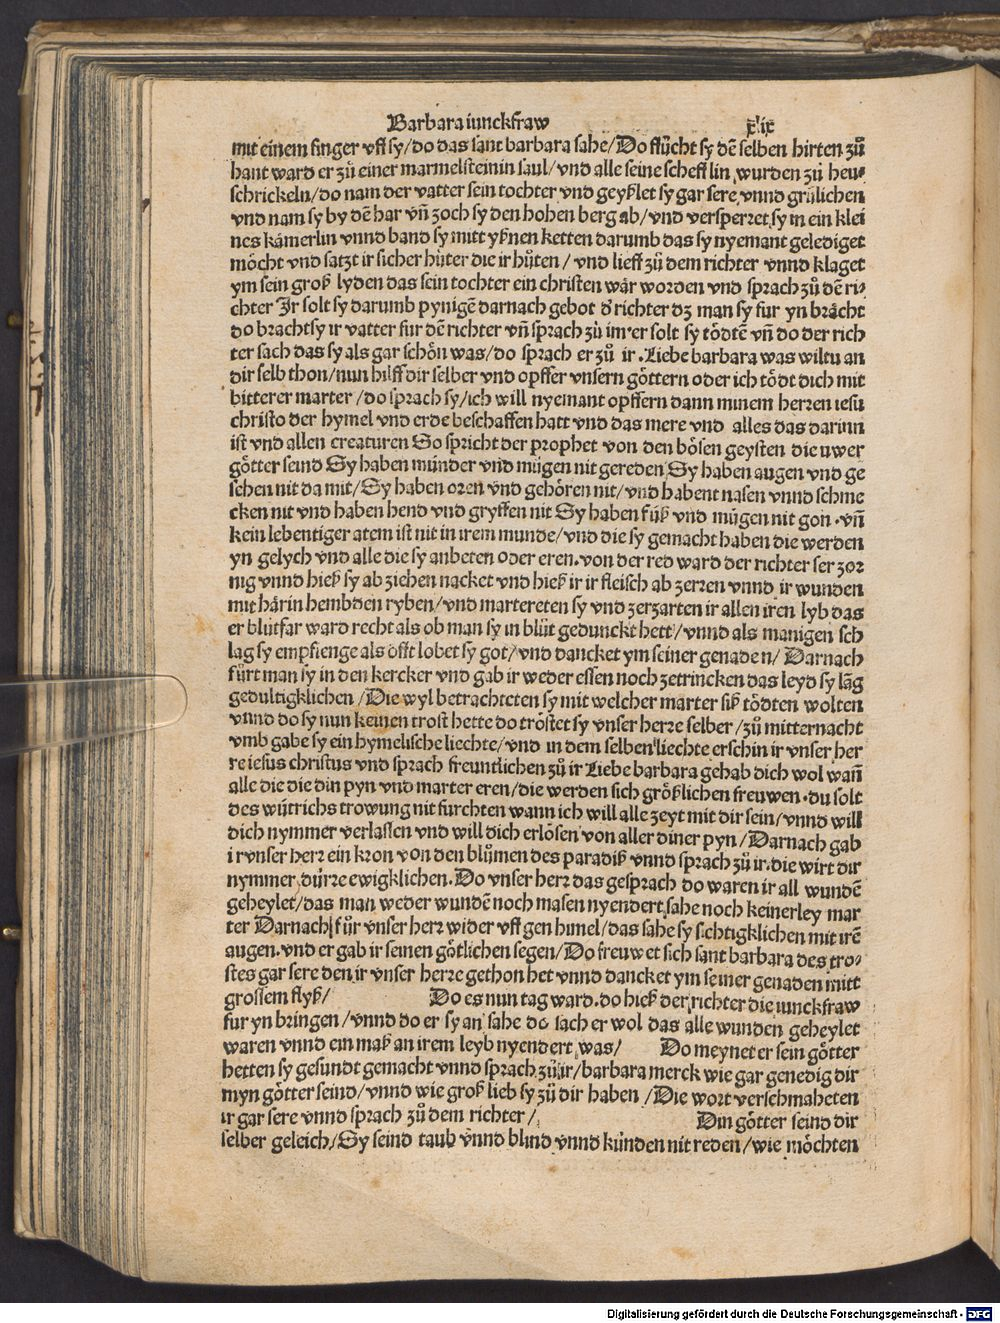 Barbara iunckfraw xlix
mit einem finger vff sy/do das sant barbara sahe/Do flücht sy dē selben hirten zů
hant ward er zů einer marmelsteinin saul/vnd alle seine scheff lin wurden zů heu⸗
schrickeln/do nam der vatter sein tochter vnd geyßlet sy gar sere vnnd grülichen
vnd nam sy by dē har vñ zoch sy den hohen berg ab/vnd versperret sy in ein klei
nes kämerlin vnnd band sy mitt yßnen ketten darumb das sy nyemant gelediget
möcht vnd satzt ir sicher hüter die ir hůten/ vnd lieff zů dem richter vnnd klaget
ym sein groß lyden das sein tochter ein christen wär worden vnd sprach zů dē ri⸗
chter Ir solt sy darumb pynigē darnach gebot d' richter dz man sy fur yn brächt
do bracht sy ir vatter fur dē richter vñ sprach zů im er solt sy tödtē vñ do der rich
ter sach das sy als gar schön was/do sprach er zů ir.Liebe barbara was wiltu an
dir selb thon/nun hilff dir selber vnd opffer vnsern göttern oder ich tödt dich mit
bitterer marter/do sprach sy/ich will nyemant opffern dann minem herren iesu
christo der hymel vnd erde beschaffen hatt vnd das mere vnd alles das darinn
ist vnd allen creaturen So spricht der prophet von den bösen geysten die uwer
götter seind Sy haben münder vnd mügen nit gereden Sy haben augen vnd ge
sehen nit da mit/Sy haben oren vnd gehören nit/vnd habent nasen vnnd schme
cken nit vnd haben hend vnd gryffen nit Sy haben füß vnd mügen nit gon.vñ
kein lebentiger atem ist nit in irem munde/vnd die sy gemacht haben die werden
yn gelych vnd alle die sy anbeten oder eren.von der red ward der richter ser zor
nig vnnd hieß sy ab ziehen nacket vnd hieß ir ir fleisch ab zerren vnnd ir wunden
mit härin hembden ryben/vnd martereten sy vnd zerzarten ir allen iren lyb das
er blůtfar ward recht als ob man sy in blůt gedunckt hett/vnnd als manigen sch
lag sy empfienge als offt lobet sy got/vnd dancket ym seiner genaden/ Darnach
fürt man sy in den kercker vnd gab ir weder essen noch zetrincken das leyd sy läg
gedultigklichen/Die wyl betrachteten sy mit welcher marter siß tödten wolten
vnnd do sy nun keinen trost hette do tröstet sy vnser herre selber/zů mitternacht
vmb gabe sy ein hymelische liechte/vnd in dem selben liechte erschin ir vnser her
re iesus christus vnd sprach freuntlichen zů ir Liebe barbara gehab dich wol wañ
alle die die din pyn vnd marter eren/die werden sich größlichen freuwen.du solt
des wütrichs trowung nit furchten wann ich will alle zeyt mit dir sein/vnnd will
dich nymmer verlassen vnd will dich erlösen von aller diner pyn/Darnach gab
ir vnser herr ein kron von den blůmen des paradiß vnnd sprach zů ir.die wirt dir
nymmer dürre ewigklichen.Do vnser herr das gesprach do waren ir all wundē
geheylet/das man weder wundē noch masen nyendert sahe noch keinerley mar
ter Darnach für vnser herr wider vff gen himel/das sahe sy sichtigklichen mit irē
augen.vnd er gab ir seinen götlichen segen/Do freuwet sich sant barbara des tro⸗
stes gar sere den ir vnser herre gethon het vnnd dancket ym seiner genaden mitt
grossem flyß/ Do es nun tag ward.do hieß der richter die iunckfraw
fur yn bringen/vnnd do er sy an sahe do sach er wol das alle wunden geheylet
waren vnnd ein maß an irem leyb nyendert was/ Do meynet er sein götter
hetten sy gesundt gemacht vnnd sprach zů ir/barbara merck wie gar genedig dir
myn götter seind/vnnd wie groß lieb sy zů dir haben/Die wort verschmaheten
ir gar sere vnnd sprach zů dem richter/ Din götter seind dir
selber geleich/Sy seind taub vnnd blind vnnd künden nit reden/wie möchten
Digitalisierung gefördert durch die Deutsche Forschungsgemeinschaft - DFG